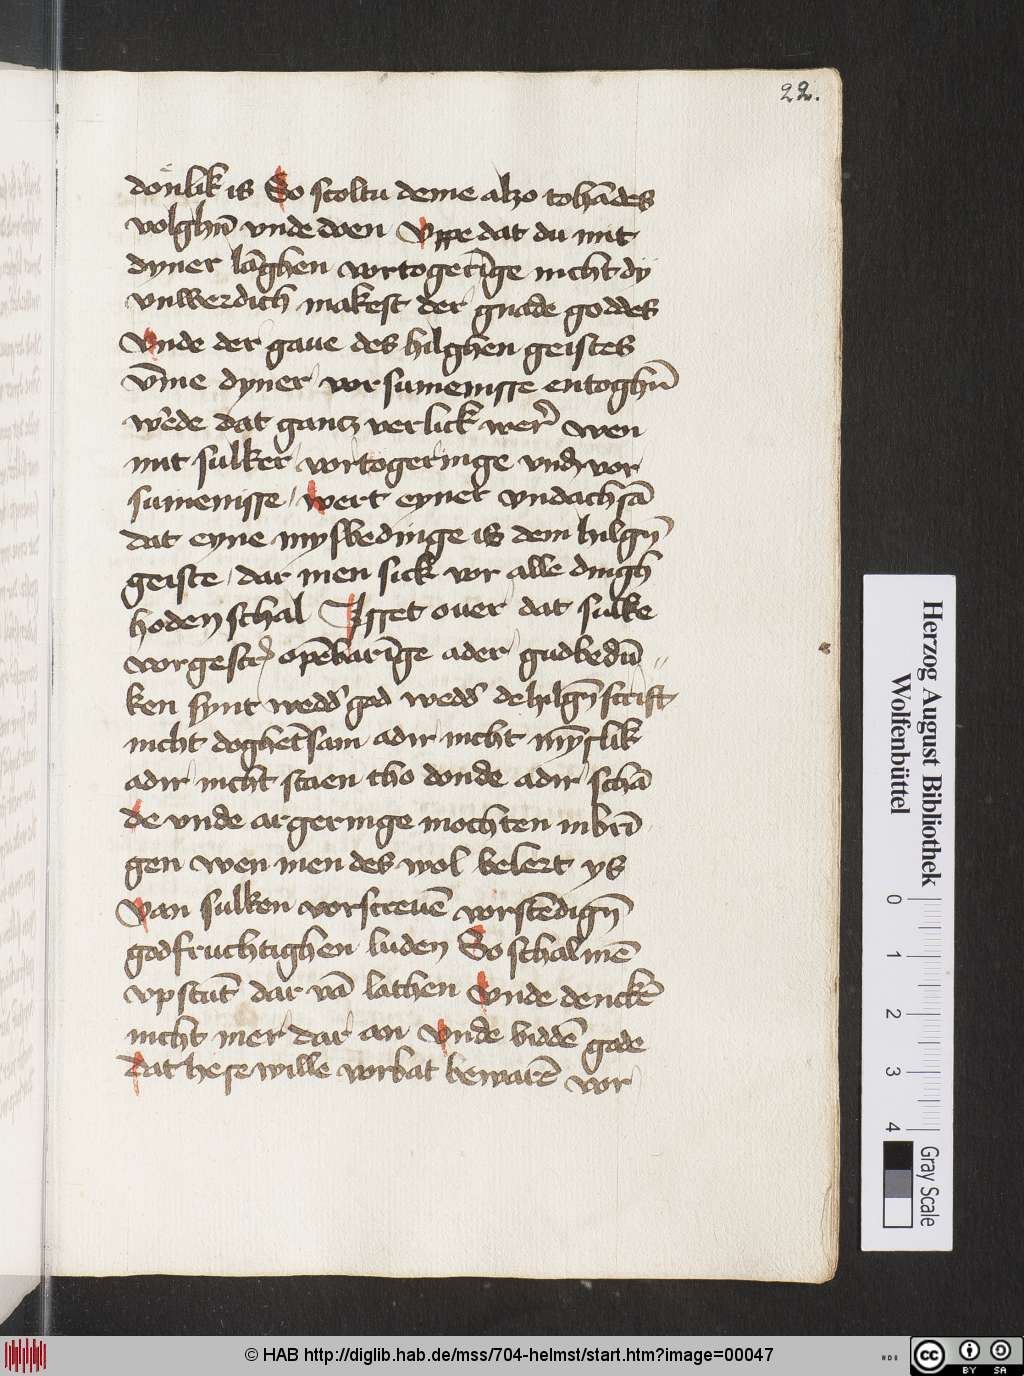 22.
donlik is So scoltu deme alzo tohādes
volghn̄ vnde doen Vppe dat du mit
dyner lāghen vortogerīge nicht dÿ
vnwerdich makest der gnade goddes
Vnde der gaue des hilghen geistes
vm̄e dyner vorsumenisse entoghn̄
werde dat gancz verlick wer̄ wen
mit sulker vortogeringe vnde vor
sumenisse / wert eyner vndachsā
dat eyne mysbedinge is dem hilgn̄
geiste / dar men sick vor alle dingh
hoden schal Isset ouer dat sulke
vorgescr̄ opēbarīge ader gudbedū〃
ken synt wedd' god wedd' de hilgn̄ scrift
nicht doghet̄sam adir nicht mȳslik
adir nicht staen tho donde adir schā
de vnde argeringe mochten inbrī
gen wen men des wol belert ys
Van sulken vorscreuē vorstēdign̄
godfruchtighen luden So schal mē
vpstan̄ dar vā lathen Vnde denckē
nicht mer dar an Vnde biddē gode
dat he se wille vorbat bewarē vor
Herzog August Bibliothek
Wolfenbüttel
0 1 2 3 4
Gray Scale
© HAB http://diglib.hab.de/mss/704-helmst/start.htm?image=00047
cc BY SA